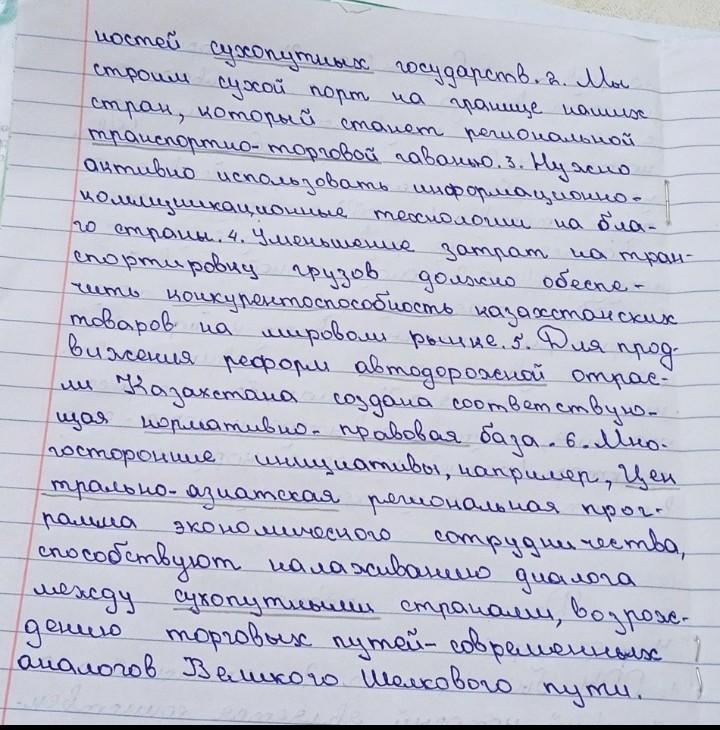 ностей сухопутных государств. 2. Мы
строим сухой порт на границе наших
стран, который станет региональной
транспортно-торговой гаванью. 3. Нужно
активно использовать информационно-
коммуникационные технологии на бла-
го страны. 4. Уменьшение затрат на тран-
спортировку грузов должно обеспе-
чить конкурентоспособность казахстанских
товаров на мировом рынке. 5. Для прод-
вижения реформ автодорожной отрас-
ли Казахстана создана соответствую-
щая нормативно-правовая база. 6. Мно-
госторонние инициативы, например, Цен
трально-азиатская региональная прог-
рамма экономического сотрудничества,
способствуют налаживанию диалога
между сухопутными странами, возрож-
дению торговых путей-современных
аналогов Великого Шелкового пути.